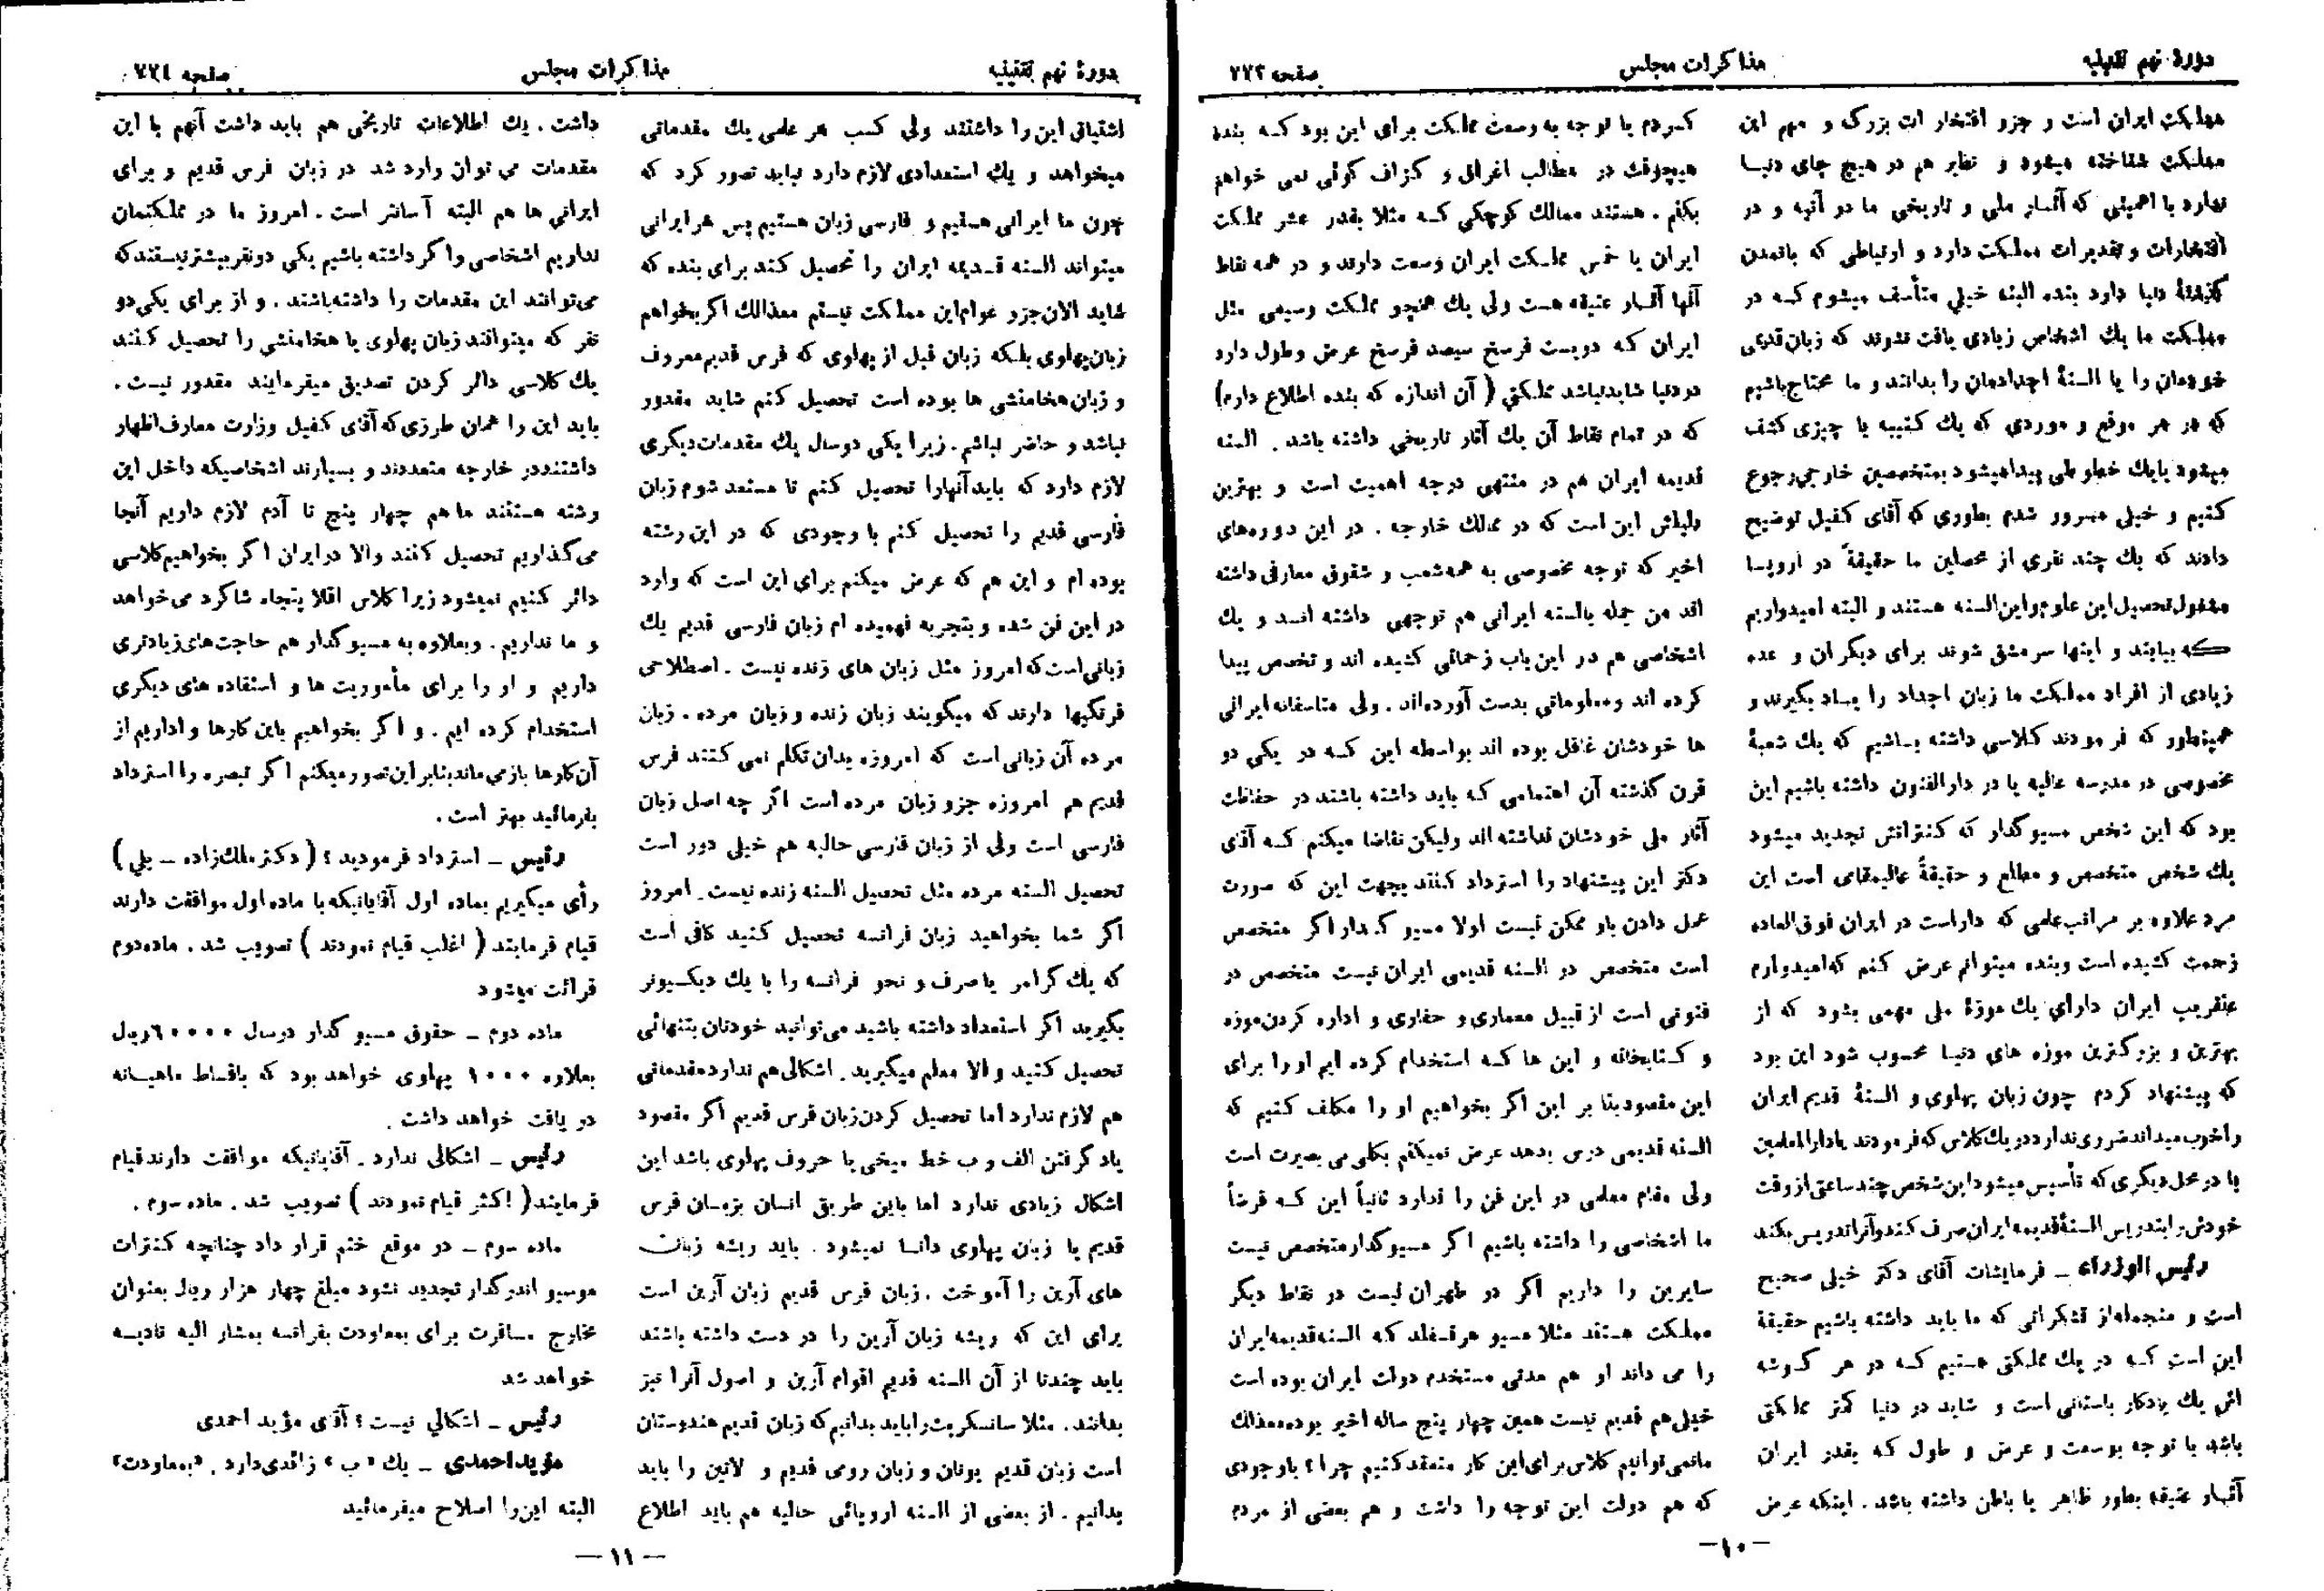 دورهٔ نهم تقنینیه
مذاکرات مجلس
صفحه ۷۷۳
مملکت ایران است و جزو افتخار ات بزرگ و مهم این
مملکت شناخته میشود و نظیر هم در هیچ جای دنیا
ندارد با اهمیتی که آثار ملی و تاریخی ما در آتیه و در
افتخارات و تقدیرات مملکت دارد و ارتباطی که باتمدن
گذشتهٔ دنیا دارد بنده البته خیلی متأسف میشوم کـه در
مملکت ما یك اشخاص زیادی یافت نشوند که زبان قدیمی
خودمان را یا السنهٔ اجدادمان را بدانند و ما محتاج باشیم
که در هر موقع و موردی که یك کتیبه یا چیزی کشف
میشود یایك خطوطی پیدا میشود بمتخصصین خارجی رجوع
کنیم و خیلی مسرور شدم بطوری که آقای کفیل توضیح
دادند که یك چند نفری از محصلین ما حقیقةً در اروپـا
مشغول تحصیل این علوم و این السنه هستند و البته امیدواریم
کـه بیایند و اینها سر مشق شوند برای دیگران و عده
زیادی از افراد مملکت ما زبان اجداد را یـاد بگیرند و
همینطور که فر مودند کلاسی داشته بـاشیم که یك شعبهٔ
مخصوصی در مدرسه عالیه یا در دارالفنون داشته باشیم این
بود که این شخص مسیو گدار که کنترانش تجدید میشود
یك شخص متخصص و مطلع و حقیقةً عالیمقامی است این
مرد علاوه بر مراتب علمی که داراست در ایران فوق العاده
زحمت کشیده است و بنده میتوانم عرض کنم که امیدوارم
عنقریب ایران دارای یك موزهٔ ملی مهمی بشود که از
بهترین و بزرگترین موزه های دنیـا محسوب شود این بود
که پیشنهاد کردم چون زبان پهلوی و السنهٔ قدیم ایران
را خوب میداند ضرری ندارد در یك کلاس که فرمودند یا دارالمعلمین
یا در محل دیگری که تأسیس میشود این شخص چند ساعتی از وقت
خودش را بتدریس السنهٔ قدیمه ایران صرف کند و آنرا تدریس بکند
رئیس الوزراء ـ فرمایشات آقای دکتر خیلی صحیح
است و منجمله از تشکراتی که ما باید داشته باشیم حقیقة
این است کـه در یك مملکتی هستیم کـه در هر گـوشه
اش یك یادگار باستانی است و شاید در دنیا کمتر مملکتی
باشد با توجه بوسعت و عرض و طول که بقدر ایران
آثـار عتیقه بطور ظاهر یا باطن داشته باشد . اینکه عرض
کـردم با توجه به وسعت مملکت برای این بود کـه بنده
هیچوقت در مطالب اغراق و گزاف گوئی نمی خواهم
بکنم . هستند ممالک کوچکی کـه مثلا بقدر عشر مملکت
ایران یا خمس مملکت ایران وسعت دارند و در همه نقاط
آنها آثـار عتیقه هست ولی یك همچو مملکت وسیعی مثل
ایران که دویست فرسخ سیصد فرسخ عرض و طول دارد
در دنیا شاید نباشد مملکتی ( آن اندازه که بنده اطلاع دارم)
که در تمام نقاط آن یك آثار تاریخی داشته باشد . السنه
قدیمه ایران هم در منتهی درجه اهمیت است و بهترین
دلیلش این است که در ممالك خارجه . در این دوره‌های
اخیر که توجه مخصوصی به همه شعب و شقوق معارفی داشته
اند من جمله بالسنه ایرانی هم توجهی داشته انـد و یك
اشخاصی هم در این باب زحماتی کشیده اند و تخصص پیدا
کرده اند و معلوماتی بدست آورده‌اند . ولی متاسفانه ایرانی
ها خودشان غافل بوده اند بواسطه این کـه در یکی دو
قرن گذشته آن اهتمامی که باید داشته باشند در حفاظت
آثار ملی خودشان نداشته اند ولیکن تقاضا میکنم کـه آقای
دکتر این پیشنهاد را استرداد کنند بجهت این که صورت
عمل دادن باو ممکن نیست اولا مسیو گـدار اگر متخصص
است متخصص در السنه قدیمی ایران نیست متخصص در
فنونی است از قبیل معماری و حفاری و اداره کردن موزه
و کـتابخانه و این ها کـه استخدام کرده ایم او را برای
این مقصود بنا بر این اگر بخواهیم او را مکلف کنیم که
السنه قدیمی درس بدهد عرض نمیکنم بکلی بی بصیرت است
ولی مقام معلمی در این فن را ندارد ثانیاً این کـه فرضاً
ما اشخاصی را داشته باشیم اگر مسیو گدار متخصص نیست
سایرین را داریم اگر در طهران نیست در نقاط دیگر
مملکت هستند مثلا مسیو هرتسفلد کـه السنه قدیمه ایران
را می داند او هم مدتی مستخدم دولت ایران بوده است
خیلی هم قدیم نیست همین چهار پنج ساله اخیر بوده معذالك
ما نمی توانیم کلاس برای این کار منعقد کنیم چرا ؟ باوجودی
که هم دولت این توجه را داشت و هم بعضی از مردم
ـ ۱۰ ـ
دورهٔ نهم تقنینیه
مذاکرات مجلس
صفحه ۷۷٤
اشتیاق این را داشتند ولی کسب هر علمی یك مقدماتی
میخواهد و یك استعدادی لازم دارد نباید تصور کرد که
چون ما ایرانی هستیم و فارسی زبان هستیم پس هر ایرانی
میتواند السنه قـدیمه ایران را تحصیل کند برای بنده که
شاید الان جزو عوام این مملکت نیستم معذالك اگر بخواهم
زبان پهلوی بلکه زبان قبل از پهلوی که فرس قدیم معروف
و زبان هخامنشی ها بوده است تحصیل کنم شاید مقدور
نباشد و حاضر نباشم . زیرا یکی دوسال یك مقدمات دیگری
لازم دارد که باید آنهارا تحصیل کنم تا مستعد شوم زبان
فارسی قدیم را تحصیل کنم با وجودی که در این رشته
بوده ام و این هم که عرض میکنم برای این است که وارد
در این فن شده و بتجربه فهمیده ام زبان فارسی قدیم یك
زبانی است که امروز مثل زبان های زنده نیست . اصطلاحی
فرنگیها دارند که میگویند زبان زنده و زبان مرده . زبان
مرده آن زبانی است که امروزه بدان تکلم نمی کنند فرس
قدیم هم امروزه جزو زبان مرده است اگر چه اصل زبان
فارسی است ولی از زبان فارسی حالیه هم خیلی دور است
تحصیل السنه مرده مثل تحصیل السنه زنده نیست . امروز
اگر شما بخواهید زبان فرانسه تحصیل کنید کافی است
که یك گرامر یا صرف و نحو فرانسه را با یك دیکسیونر
بگیرید اگر استعداد داشته باشید می‌توانید خودتان بتنهائی
تحصیل کنید و الا معلم میگیرید . اشکالی هم ندارد مقدماتی
هم لازم ندارد اما تحصیل کردن زبان فرس قدیم اگر مقصود
یاد گرفتن الف و ب خط میخی یا حروف پهلوی باشد این
اشکال زیادی ندارد اما باین طریق انسان بزبـان فرس
قدیم یا زبان پهلوی دانـا نمیشود . باید ریشه زبان
های آرین را آموخت . زبان فرس قدیم زبان آرین است
برای این که ریشه زبان آرین را در دست داشته باشند
باید چندتا از آن السنه قدیم اقوام آرین و اصول آنرا نیز
بدانند . مثلا سانسکریت را باید بدانیم که زبان قدیم هندوستان
است زبان قدیم یونان و زبان رومی قدیم و لاتین را باید
بدانیم . از بعضی از السنه اروپائی حالیه هم باید اطلاع
داشت . یك اطلاعات تاریخی هم باید داشت آنهم با این
مقدمات می توان وارد شد در زبان فرس قدیم و برای
ایرانی ها هم البته آسانتر است . امروز ما در مملکتمان
نداریم اشخاصی و اگر داشته باشیم یکی دو نفر بیشتر نیستند که
می‌توانند این مقدمات را داشته باشند . و از برای یکی دو
نفر که میتوانند زبان پهلوی یا هخامنشی را تحصیل کنند
یك کلاسی دائر کردن تصدیق میفرمایند مقدور نیست .
باید این را همان طرزی که آقای کفیل وزارت معارف اظهار
داشتند در خارجه متعددند و بسیارند اشخاصیکه داخل این
رشته هستند ما هم چهار پنج تا آدم لازم داریم آنجا
می‌گذاریم تحصیل کنند والا در ایران اگر بخواهیم کلاسی
دائر کنیم نمیشود زیرا کلاس اقلا پنجاه شاگرد می‌خواهد
و ما نداریم . و بعلاوه به مسیو گدار هم حاجت های زیادتری
داریم و او را برای مأموریت ها و استفاده های دیگری
استخدام کرده ایم . و اگر بخواهیم باین کارها واداریم از
آن کارها باز می ماند بنابر این تصور میکنم اگر تبصره را استرداد
بفرمائید بهتر است .
رئیس ـ استرداد فرمودید ؟ ( دکتر ملك زاده ـ بلی )
رأی میگیریم بماده اول آقایانیکه با ماده اول موافقت دارند
قیام فرمایند ( اغلب قیام نمودند ) تصویب شد . ماده دوم
قرائت میشود
ماده دوم ـ حقوق مسیو گدار درسال ٦۰۰۰۰ ریال
بعلاوه ۱۰۰۰ پهلوی خواهد بود که باقساط ماهیـانه
در یافت خواهد داشت .
رئیس ـ اشکالی ندارد . آقایانیکه موافقت دارند قیام
فرمایند ( اکثر قیام نمودند ) تصویب شد . ماده سوم .
ماده سوم ـ در موقع ختم قرار داد چنانچه کنترات
موسیو اندر گدار تجدید نشود مبلغ چهار هزار ریال بعنوان
مخارج مسافرت برای بمعاودت بفرانسه بمشار الیه تادیـه
خواهد شد
رئیس ـ اشکالی نیست ؟ آقای مؤید احمدی
مؤید احمدی ـ یك «ب» زائدی دارد . «بمعاودت»
البته این را اصلاح میفرمائید
ـ ۱۱ ـ